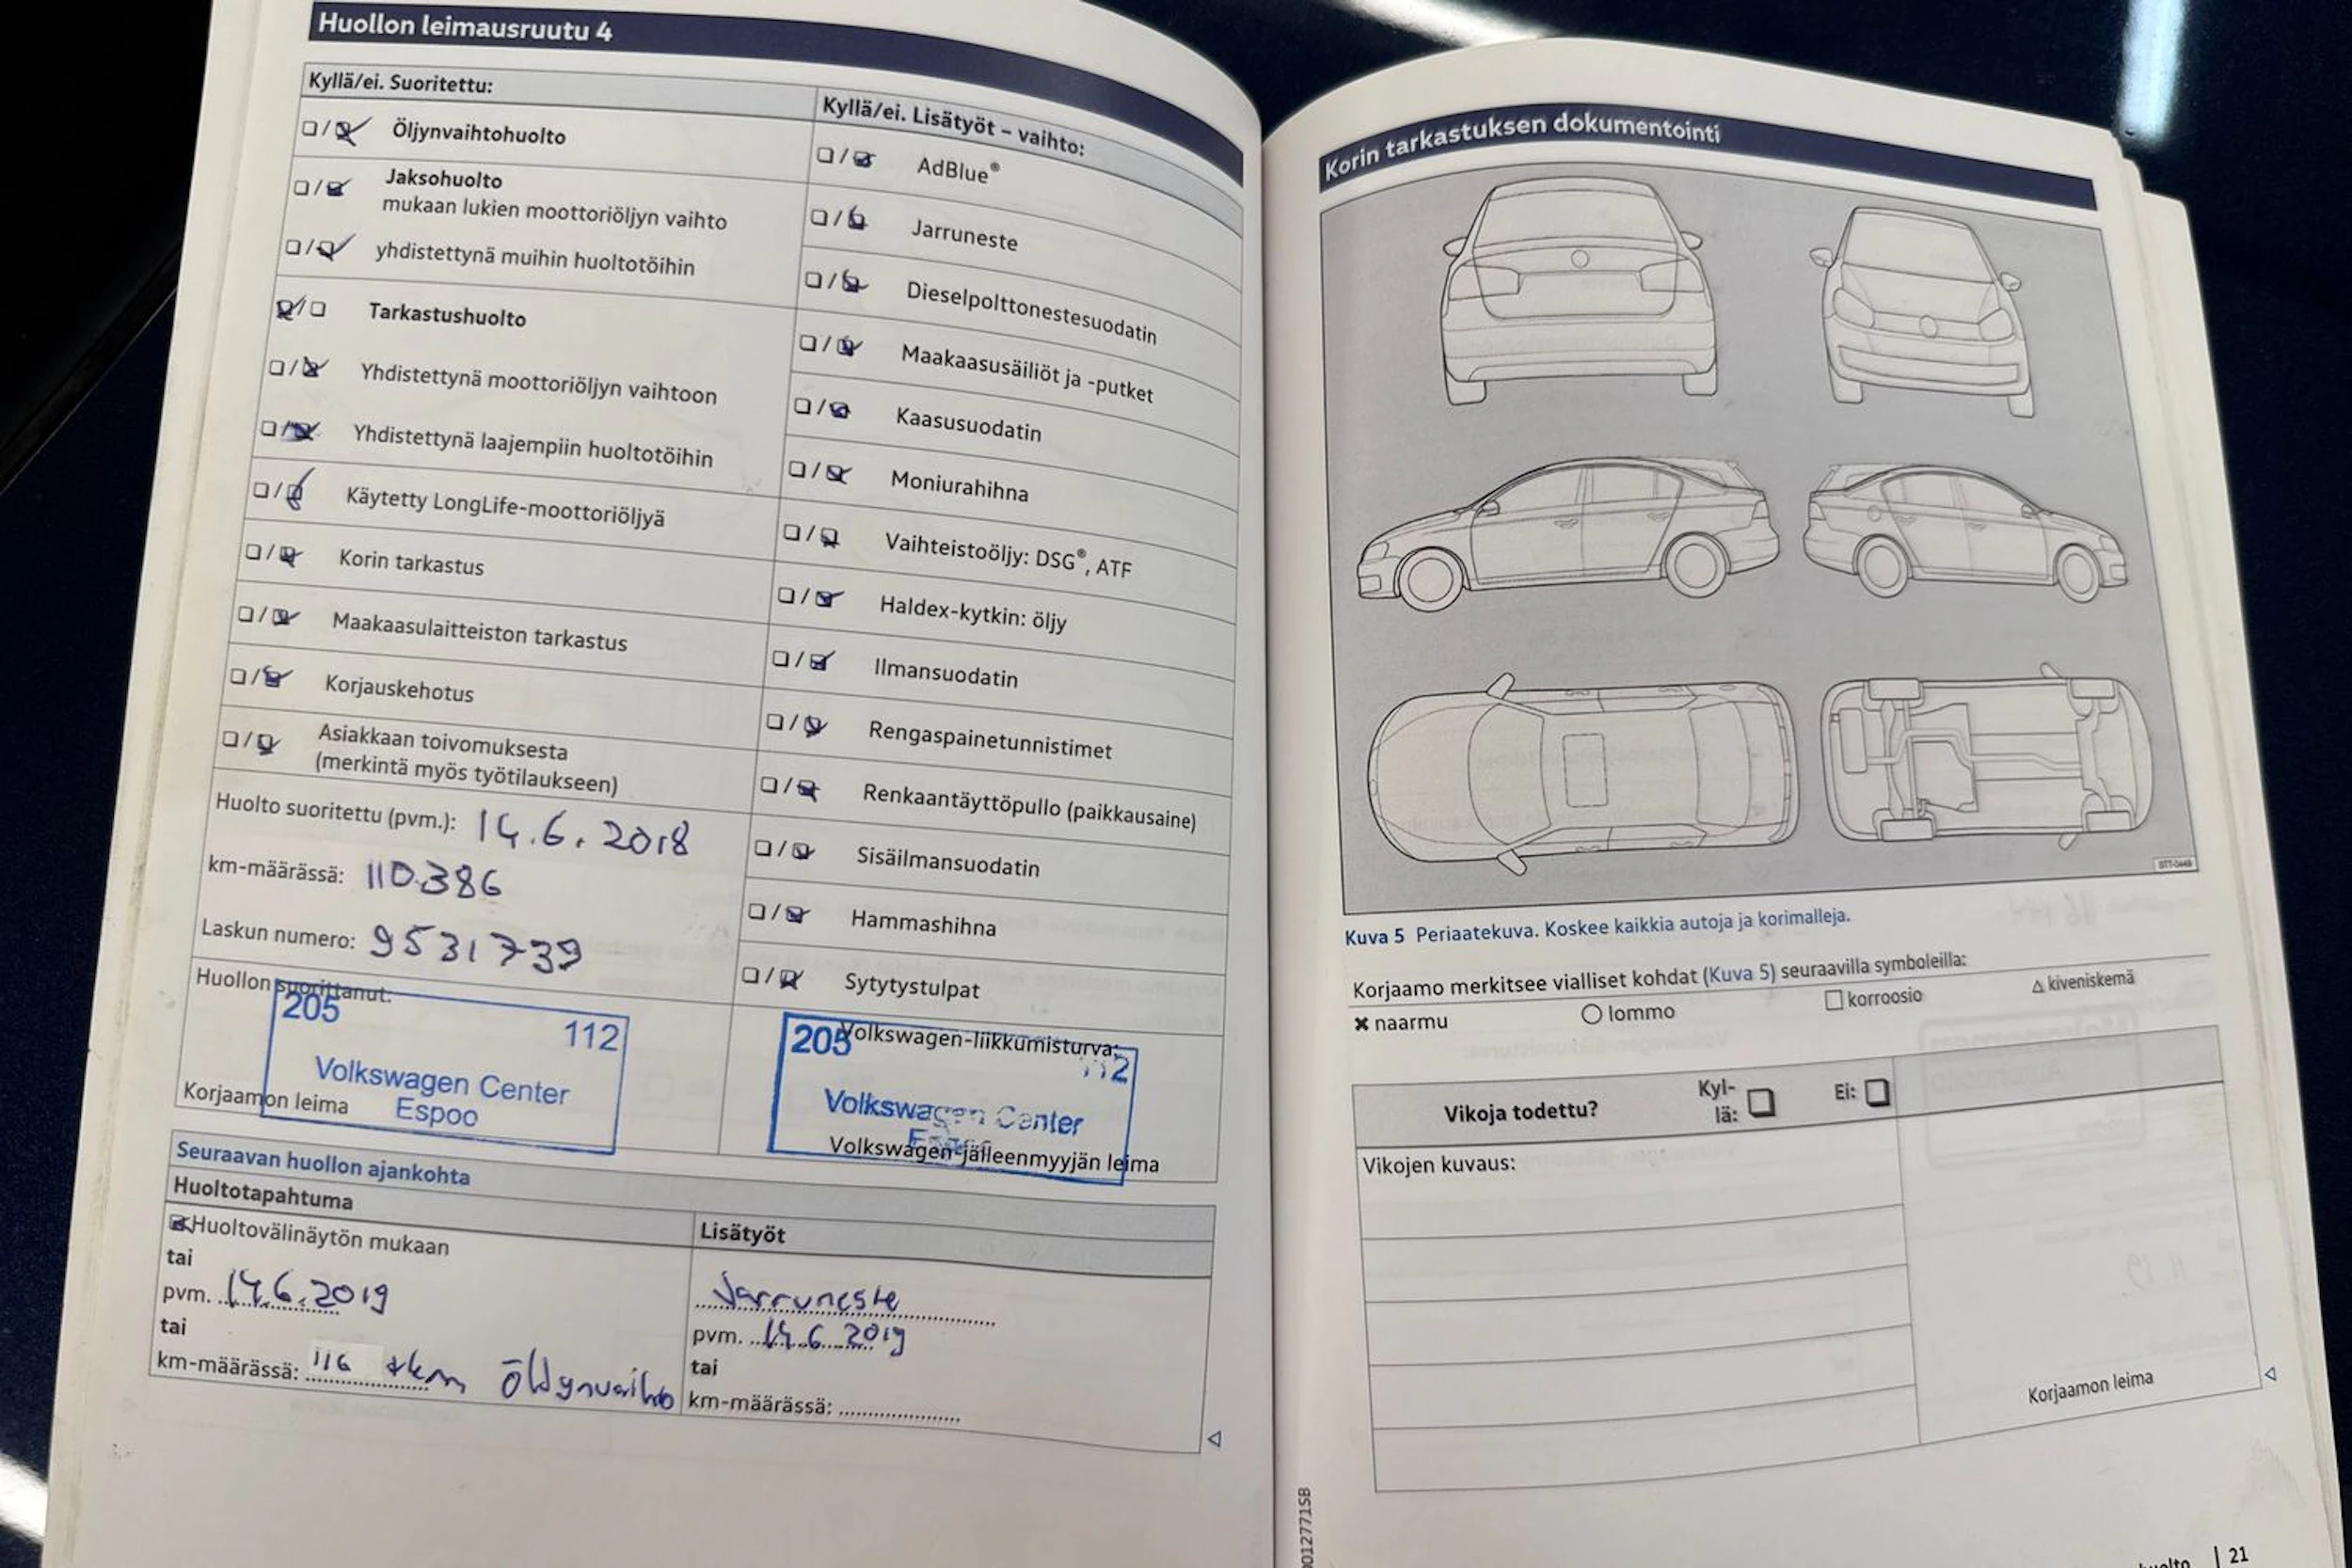 Huollon leimausruutu 4
Kyllä/ei. Suoritettu:
Öljynvaihtohuolto
Jaksohuolto
mukaan lukien moottoriöljyn vaihto
yhdistettynä muihin huoltotöihin
Tarkastushuolto
Yhdistettynä moottoriöljyn vaihtoon
Yhdistettynä laajempiin huoltotöihin
Käytetty LongLife-moottoriöljyä
Korin tarkastus
Maakaasulaitteiston tarkastus
Korjauskehotus
Asiakkaan toivomuksesta
(merkintä myös työtilaukseen)
Huolto suoritettu (pvm.): 14.6.2018
km-määrässä: 110.386
Laskun numero: 9531739
Huollon suorittanut:
205 112
Volkswagen Center
Espoo
Korjaamon leima
Kyllä/ei. Lisätyöt – vaihto:
AdBlue®
Jarruneste
Dieselpolttonestesuodatin
Maakaasusäiliöt ja -putket
Kaasusuodatin
Moniurahihna
Vaihteistoöljy: DSG®, ATF
Haldex-kytkin: öljy
Ilmansuodatin
Rengaspainetunnistimet
Renkaantäyttöpullo (paikkausaine)
Sisäilmansuodatin
Hammashihna
Sytytystulpat
Volkswagen-liikkumisturva:
205 112
Volkswagen Center
Espoo
Volkswagen-jälleenmyyjän leima
Seuraavan huollon ajankohta
Huoltotapahtuma
Huoltovälinäytön mukaan
tai
pvm. 14.6.2019
tai
km-määrässä: 116 tkm öljynvaihto
Lisätyöt
Jarruneste
pvm. 14.6.2019
tai
km-määrässä:
Korin tarkastuksen dokumentointi
BTT-0449
Kuva 5 Periaatekuva. Koskee kaikkia autoja ja korimalleja.
Korjaamo merkitsee vialliset kohdat (Kuva 5) seuraavilla symboleilla:
naarmu lommo korroosio kiveniskemä
Vikoja todettu? Kyl-
lä: Ei:
Vikojen kuvaus:
Korjaamon leima
21